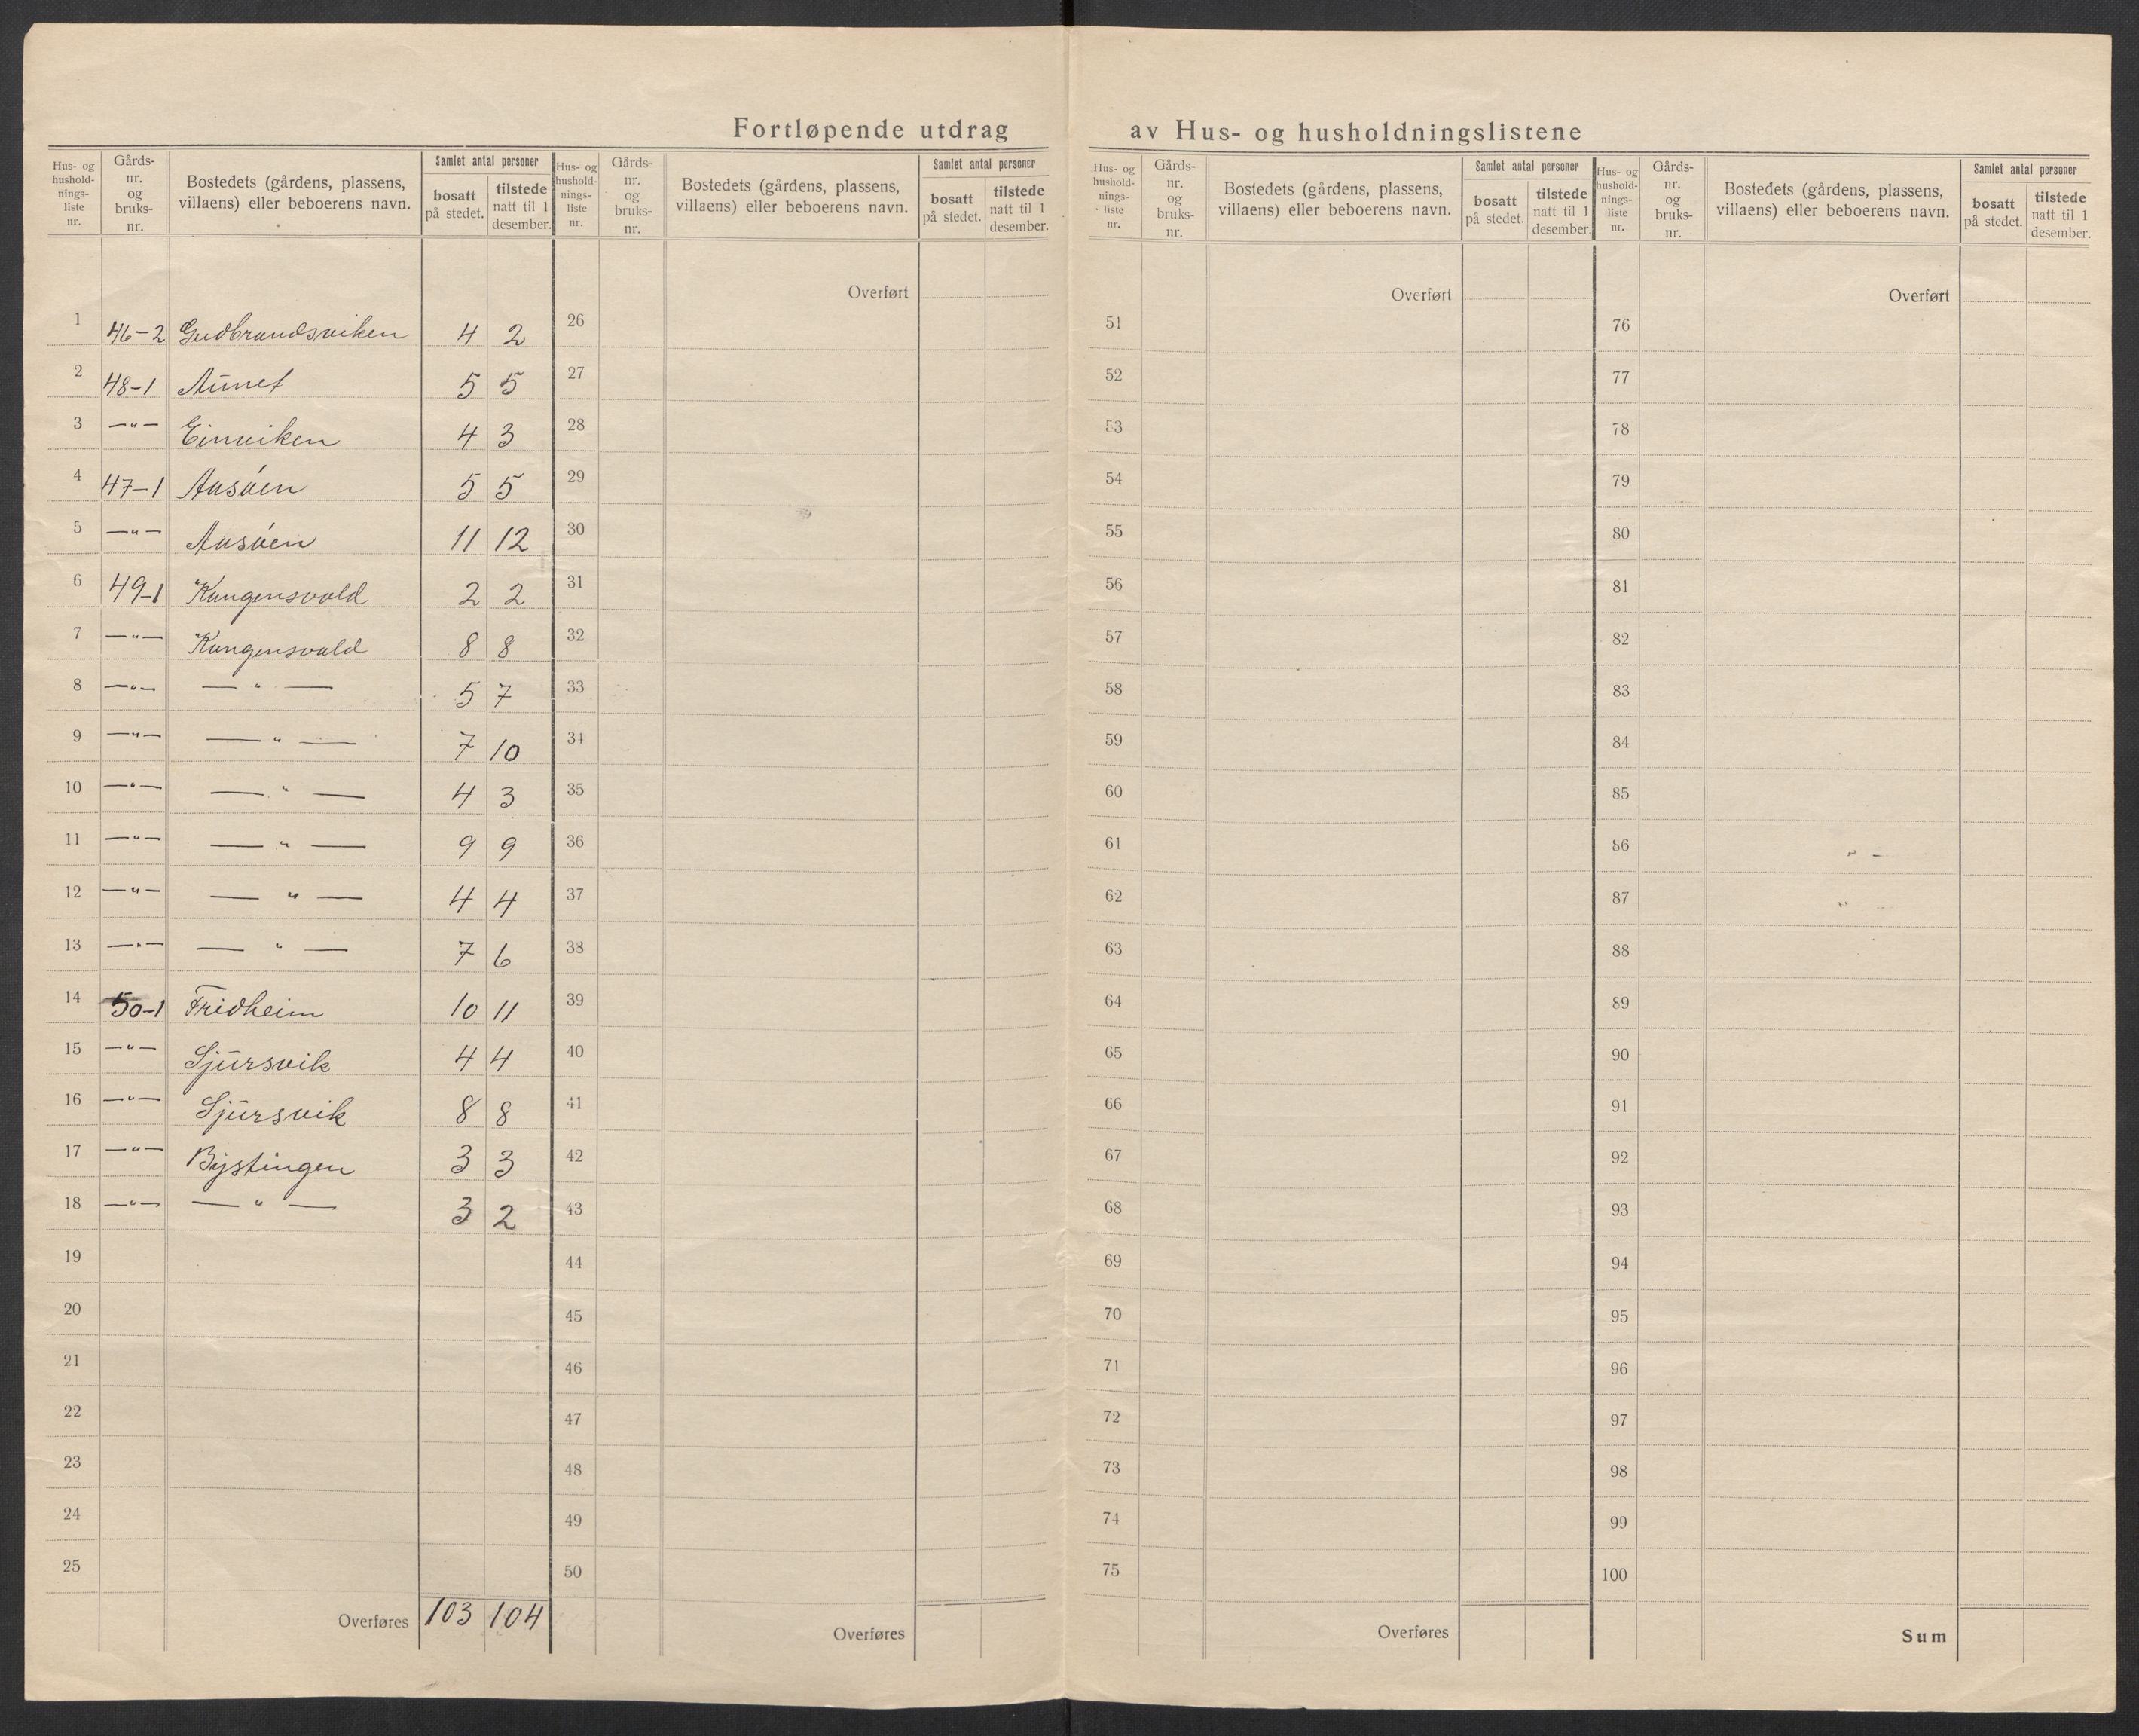 Fortløpende utdrag av Hus- og husholdningslistene
Hus- og hushold- nings- liste nr. | Gårds- nr. og bruks- nr. | Bostedets (gårdens, plassens, villaens) eller beboerens navn. | Samlet antal personer | bosatt på stedet. | tilstede natt til 1 desember.
1 46-2 Gudbrandsviken 4 2
2 48-1 Aunet 5 5
3 —"— Einviken 4 3
4 47-1 Aasøen 5 5
5 —"— Aasøen 11 12
6 49-1 Kongensvold 2 2
7 —"— Kongensvold 8 8
8 —"— — " — 5 7
9 —"— — " — 7 10
10 —"— — " — 4 3
11 —"— — " — 9 9
12 —"— — " — 4 4
13 —"— — " — 7 6
14 50-1 Fridheim 10 11
15 —"— Sjursvik 4 4
16 —"— Sjursvik 8 8
17 —"— Bystingen 3 3
18 —"— — " — 3 2
19
20
21
22
23
24
25
Overføres 103 104
Hus- og hushold- nings- liste nr. | Gårds- nr. og bruks- nr. | Bostedets (gårdens, plassens, villaens) eller beboerens navn. | Samlet antal personer | bosatt på stedet. | tilstede natt til 1 desember.
Overført
26
27
28
29
30
31
32
33
34
35
36
37
38
39
40
41
42
43
44
45
46
47
48
49
50
Overføres
Hus- og hushold- nings- liste nr. | Gårds- nr. og bruks- nr. | Bostedets (gårdens, plassens, villaens) eller beboerens navn. | Samlet antal personer | bosatt på stedet. | tilstede natt til 1 desember.
Overført
51
52
53
54
55
56
57
58
59
60
61
62
63
64
65
66
67
68
69
70
71
72
73
74
75
Overføres
Hus- og hushold- nings- liste nr. | Gårds- nr. og bruks- nr. | Bostedets (gårdens, plassens, villaens) eller beboerens navn. | Samlet antal personer | bosatt på stedet. | tilstede natt til 1 desember.
Overført
76
77
78
79
80
81
82
83
84
85
86
87
88
89
90
91
92
93
94
95
96
97
98
99
100
Sum